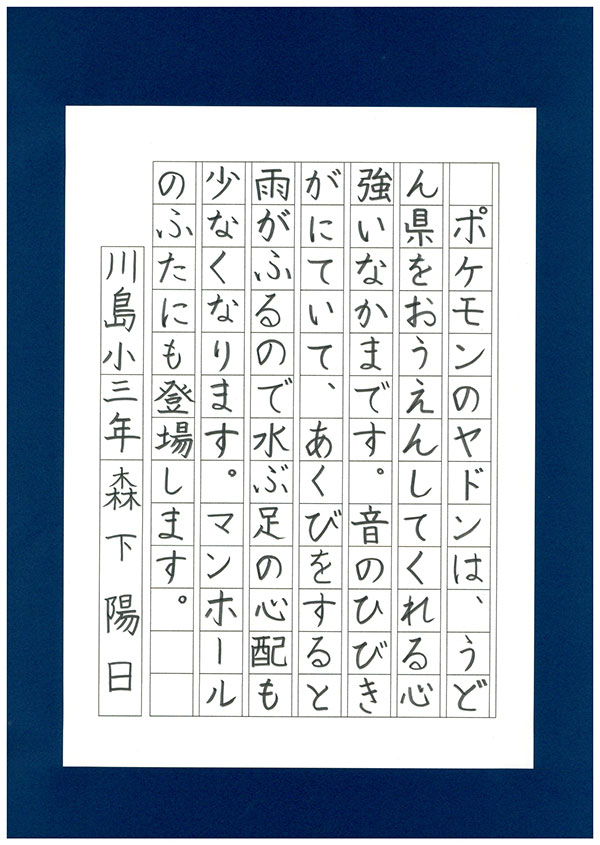 ポケモンのヤドンは、うど
ん県をおうえんしてくれる心
強いなかまです。音のひびき
がにていて、あくびをすると
雨がふるので水ぶ足の心配も
少なくなります。マンホール
のふたにも登場します。
川島小三年森下陽日